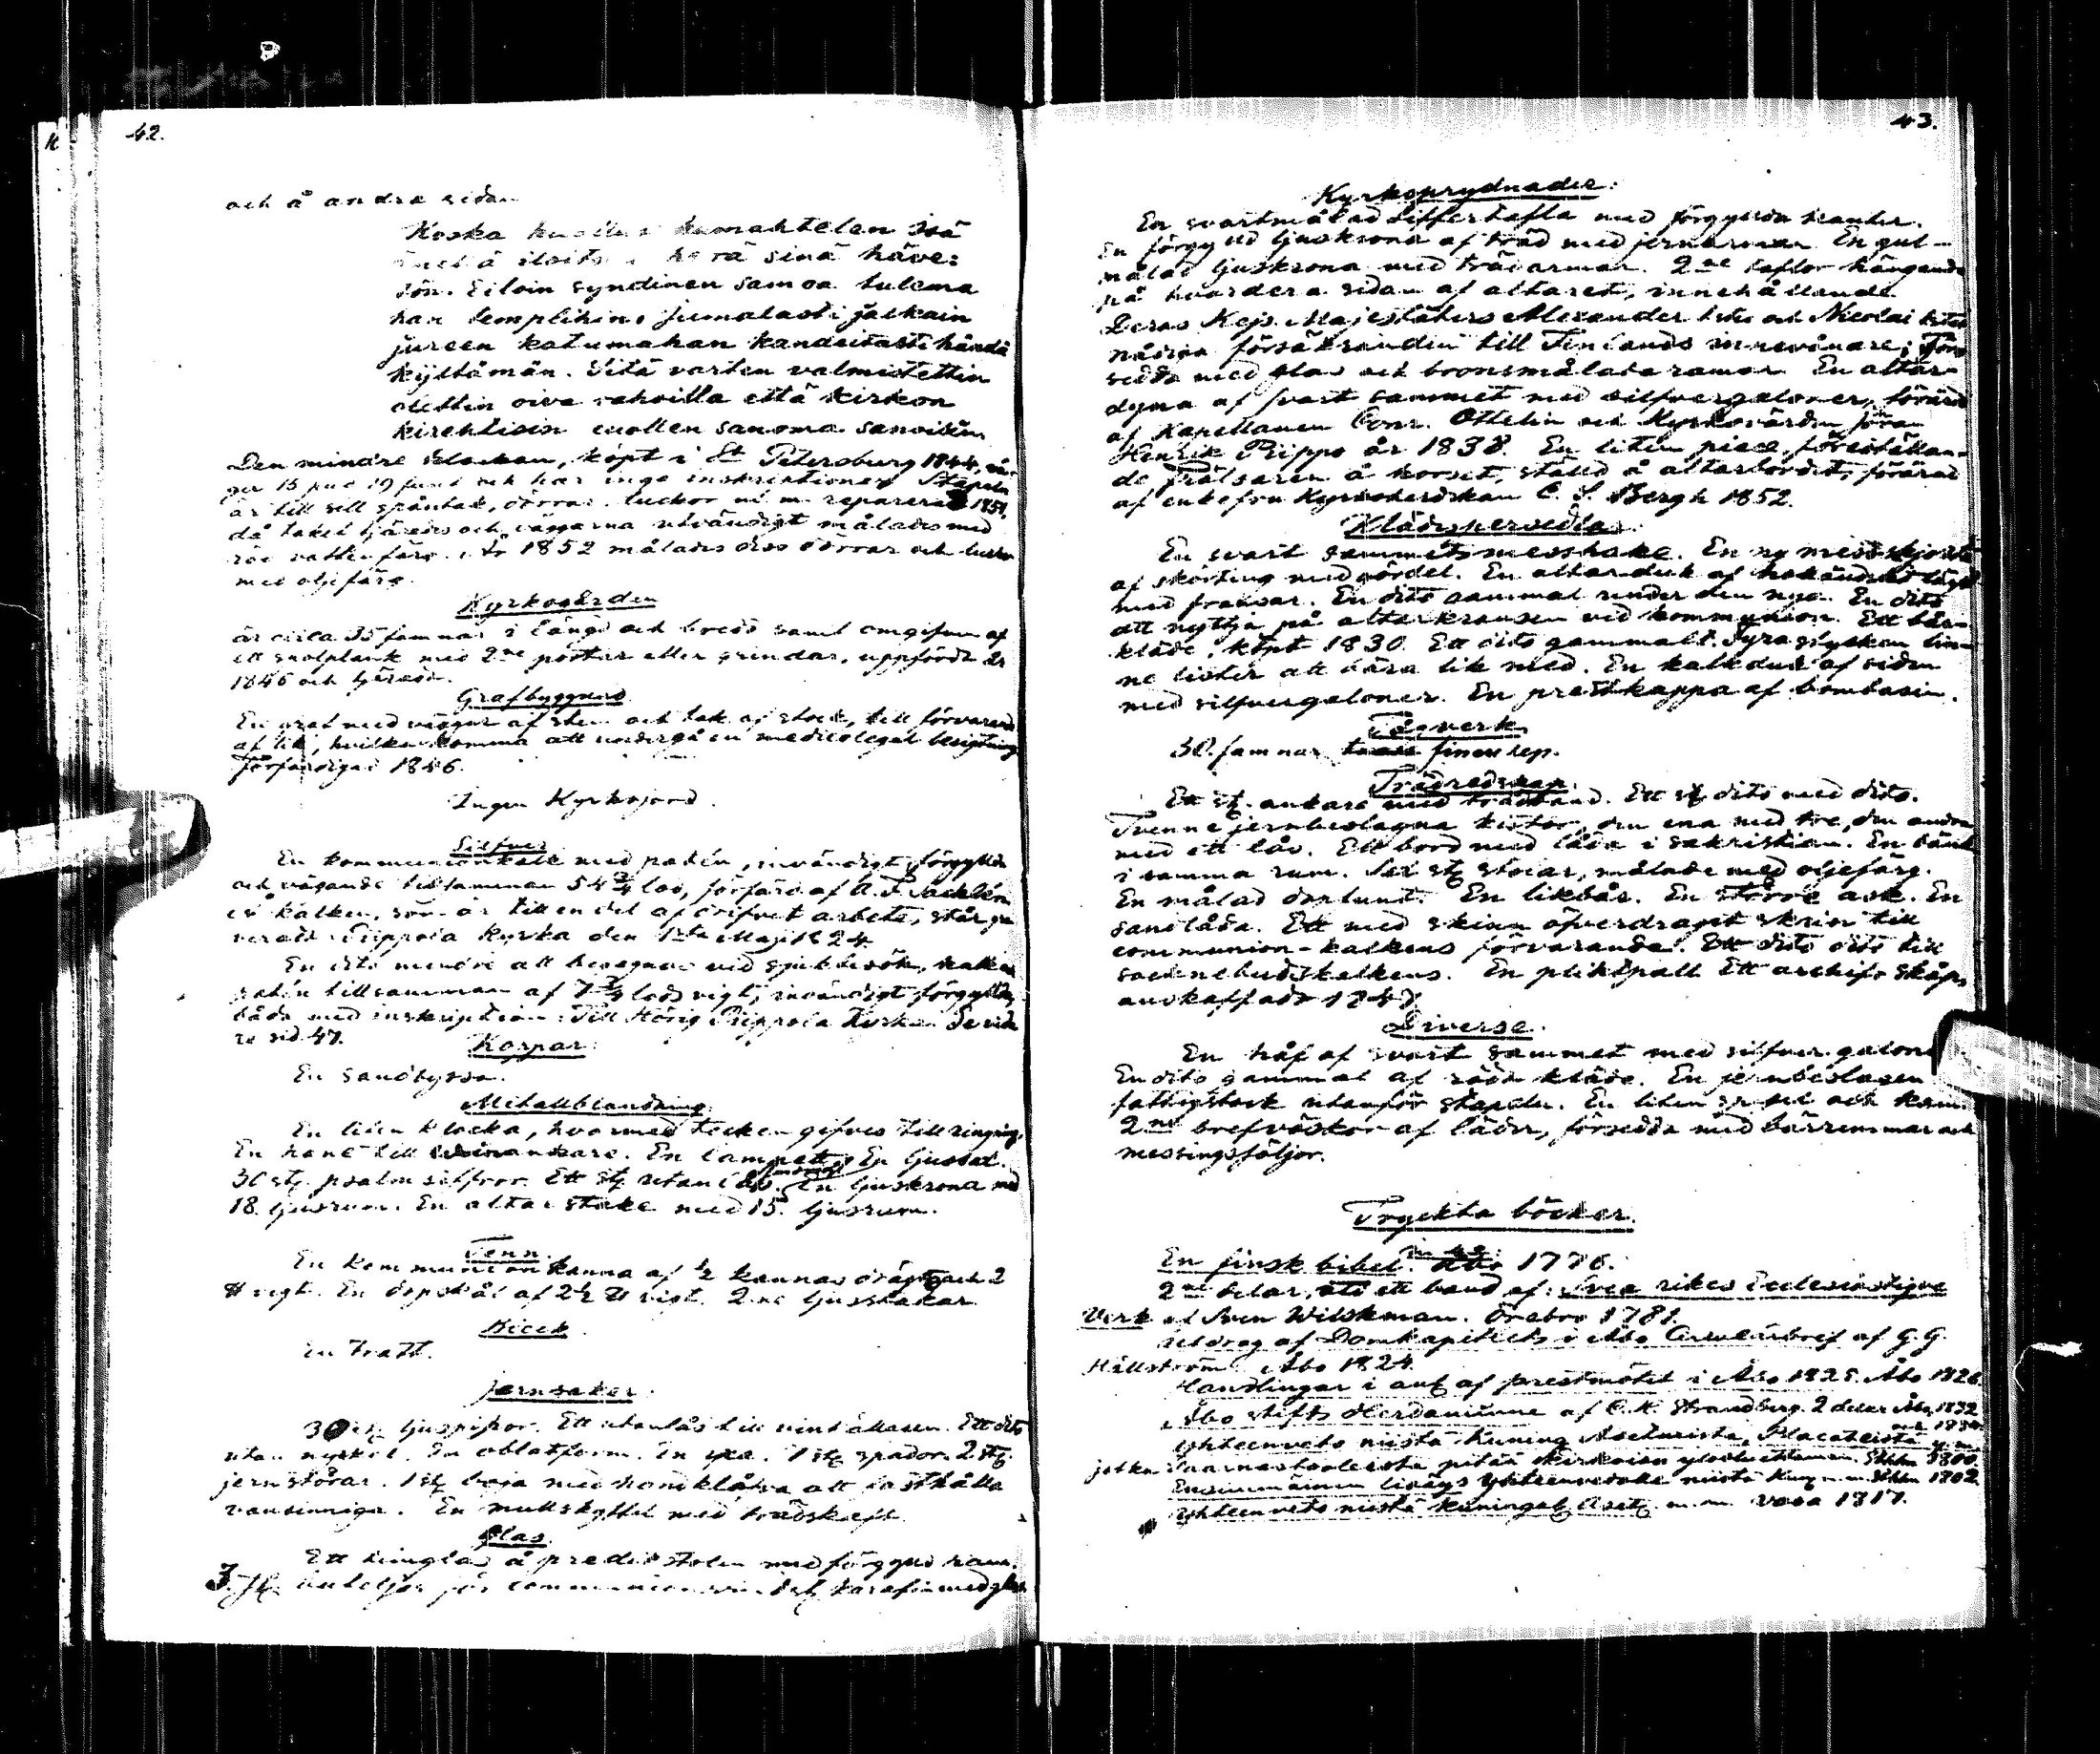 42.
och å andra sidan
Koska kumahtelen Isä
herä sinä häve:
sön. Eiloin syndinen samoa tulema
han templihin, jumalasti jälkain
jureen katumahan kandeitasti händä
kyltämän. Sitä varten valmistettin
olettin oiva rahoilla että kirkon
kirehtisin cuollen sanoma sanoisin
Den mindre klockan, köpt i St Petersburg 1844, vä-
ger 15 pud 19 och har inga inskriptioner. Stapeln
är till sitt spåntak, dörrar, luckor m. m. reparerad 1851,
då taket tjärades och väggarna utvändigt målades med
röd vattenfärg. År 1852 målades dess dörrar och luckor
med oljefärg.
Kyrkogården
är circa 35 famnar i längd och bredd samt omgifven af
ett plank med 2ne portar eller grindar, uppförde år
1846 och tjärade.
Grafbyggnad
En graf med väggar af sten och tak af stock, till förvarande
af lik, hvilka komma att undergå en medicolegal besigtning
färdigad 1846.
Ingen Kyrkojord.
Silfver
En kommunionkalk med patén, invändigt förgyllda
och vägande tillsamman 54 3/4 lod, förfärd. af A. F.
å kalken, som är till en del af drifvet arbete, står gra
verad: Piippola Kyrka den 1sta Maji 1824
En dito mindre att begagnas vid sjukbesök, kalk
patén tillsamman af 7 3/4 lods vigt, invändigt förgyllda,
båda med inskription: Till Hörig Piippola Kyrka. Se vida
re sid. 47.
Koppar:
En sandbyssa.
Metallblandning.
En liten klocka, hvarmed tecken gifves till ringning.
En hane till vinankare. En lampett. En ljussax.
30 st. psalmsiffror. Ett st. utanlås. En ljuskrona med
18 ljusrum. En altarstake med 15 ljusrum.
Tenn.
En kommunionkanna af 1/2 kannas drägt och 2
℔ vigt. En dopskål af 2 1/2 ℔ vigt. 2ne ljusstakar
Bleck
En Tratt.
Jernsaker.
30 st. ljuspipor. Ett utanlås till vinkällaren. Ett dito
utan nyckel. En oblatform. En yxa. 1 st. spador. 2 st.
jernstörar. 1 st. boja med handklåfva att fasthålla
vansinniga. En mullskyffel med trädskaft.
Glas.
Ett timglas å predikstolen med förgylld ram.
3 st. buteljer för communionvin. 1 st. karafin med glas

43.
Kyrkoprydnader:
En svartmålad Siffertafla med förgyllda kanter.
En förgylld ljuskrona af träd med jernarmar. En gul-
målad ljuskrona med trädarmar. 2ne taflor hängande
på hvardera sidan af altaret, innehållande
Deras Kejs. Majestäters Alexander 1stes och Nicolai 1stes
nådiga försäkranden till Finlands innevånare; för-
sedda med glas och bronsmålade ramar. En altar-
dyna af svart sammet med silfvergaloner, förärad
af Kapellanen Conr. Ottelin och Kyrkovärden Johan
Henrik Piippo år 1838. En liten piece, föreställan-
de Frälsaren å korset, ställd å altarbordet, förärad
af enkefru Kyrkoherdskan C. S. Bergh 1852.
Klädespersedlar.
En svart sammetsmesshake. En ny messskjorta
af skirting med gördel. En altarduk af holländskt
med fransar. En dito gammal under den nya. En dito
att nyttja på altarkransen vid kommunion. Ett bår-
kläde, köpt 1830. Ett dito gammalt. Fyra stycken lin-
ne lister att bära lik med. En kalkduk af siden
med silfvergaloner. En prestkappa af bombasin.
Tågverk
30 famnar finare rep.
Trädredskap.
Ett st. ankare med trädband. Ett st. dito med dito.
Tvenne jernbeslagna kistor, den ena med tre, den andra
med ett lås. Ett bord med låda i sakristian. En bänk
i samma rum. Sex st. stolar, målade med oljefärg.
En målad dopfunt. En likbår. En större ask. En
sandlåda. Ett med skinn öfverdraget skrin till
communion-kalkens förvarande. Ett dito dito till
sockenebudskalkens. En pliktpall. Ett archifs skåp,
anskaffadt 1847.
Diverse.
En håf af svart sammet med silfver galoner
En dito gammal af rödt kläde. En jernbeslagen
fattigstock utanför stapeln. En liten spegel och kam.
2ne brefväskor af läder, försedda med bärremmar och
messingsföljor.
Tryckta böcker.
En finsk bibel. in 4o. Åbo 1776.
2ne delar, uti ett band af: Svea rikes Ecclesiastique
Verk af Sven Wilskman. Örebro 1781.
Utdrag af Domkapitlets i Åbo Circulärbref af G. G.
Hällström. Åbo 1824.
Handlingar i anl. af prestmötet i Åbo 1825. Åbo 1826.
Åbo stifts Herdaminne af C. H. Strandberg. 2 delar Åbo, 1832
och 1834.
Yhteenveto niistä Kuning. Asetuxista, Placateista y. m.
jotka saarnastooleista pitää kirkoisa yloslu'ettaman. Sthlm 1800.
Ensimmäinen lisäys Yhteenvetohon niistä Kung. m. m. Sthlm 1802.
Yhteenveto niistä kuningal. Aset. m. m. Vasa 1817.